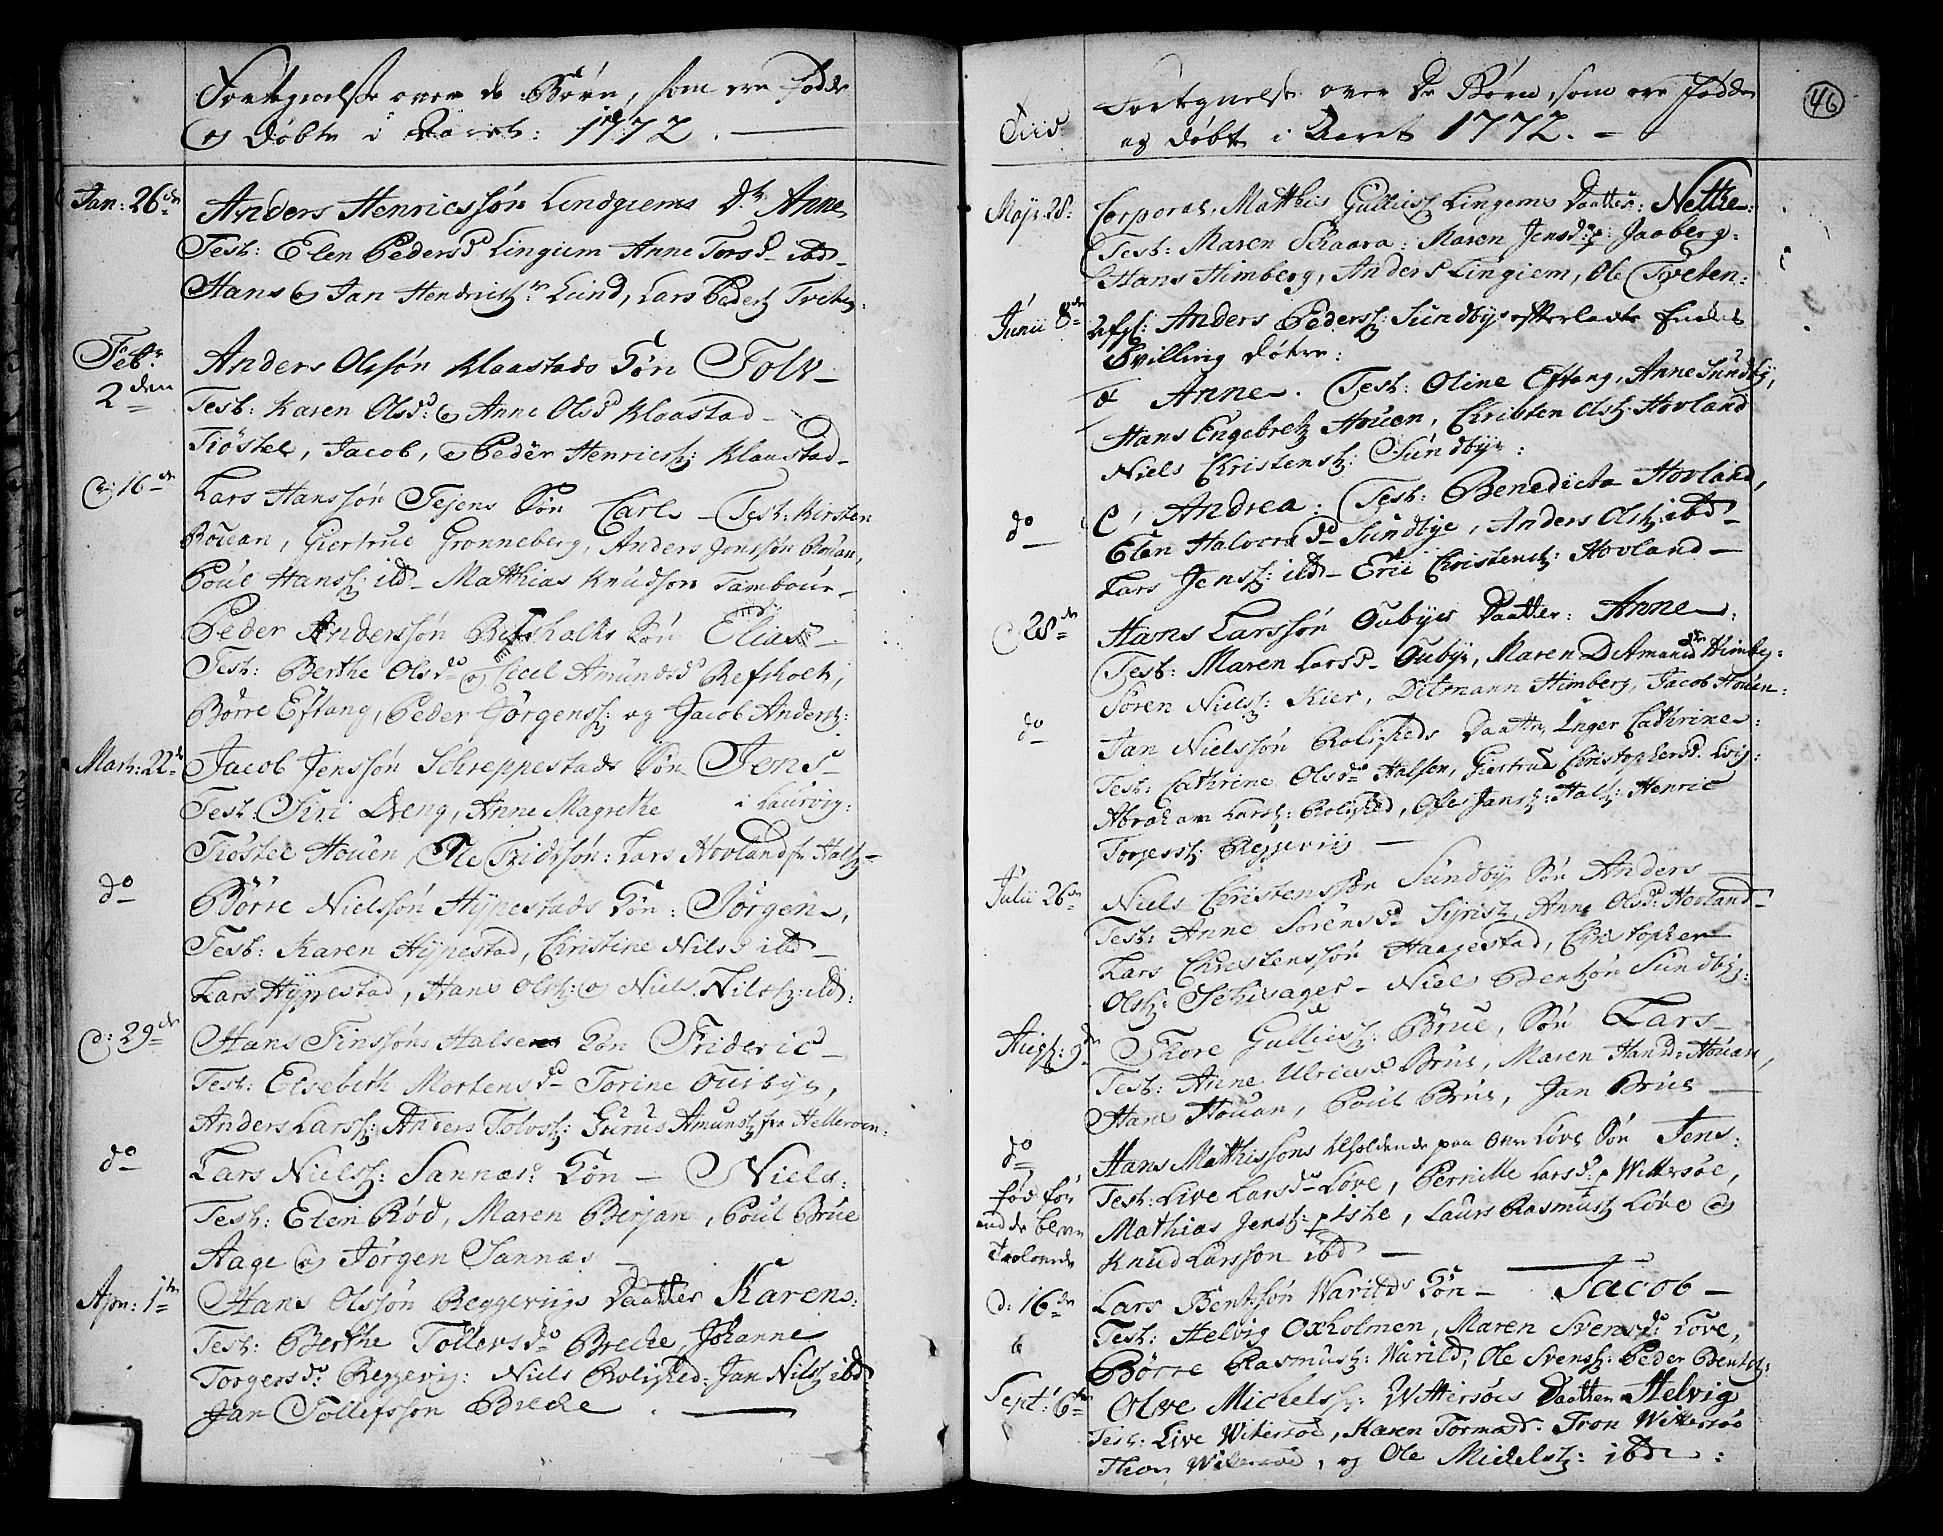 Fortegnelse over de Børn, som ere Fødde
og Døbte i Aaret: 1772.
Jan: 26de Anders Henricssøn Lindgiems Dr Anne
Test: Elen Pedersd Lingum Anne Torsd ibd
Hans og Jan Hendrichs Lund, Lars Peders Tveten
Febr 2den Anders Olssøn Klaastads Søn Tolv
Test: Karen Olsd: og Anne Olsd Klaastad
Tiøstel, Jacob, og Peder Henrics: Klaastad
d: 16de Lars Hanssøn Tejens Søn Carl Test: Kirsten
Rouan, Giertrue Grønneberg, Anders Jenssøn Rouan,
Poul Hanss: ibd Matthias Knudsøn Tambour
Peder Anderssøn Refsholts Søn Elias
Test: Berthe Olsd og Cicel Amundsd Refsholt,
Børre Eftang, Peder Jørgens: og Jacob Anders:
Mart: 22de Jacob Jenssøn Schreppestads Søn Jens
Test: Siri Deng, Anne Magrethe i Laurvig:
Tiøstel Houen, Ole Fridrsøn: Lars Hovland fr Hals
do Børre Nielssøn Hypestads Søn: Jørgen,
Test: Karen Hypestad, Christine Nilsd ibd
Lars Hypestad, Hans Ols: og Niels Nils: ibd:
d: 29de Hans Finssøns Halsen Søn Frideric
Test: Elsebeth Mortensd Torine Ouibye,
Anders Lars: Anders Tolvs: Gurus Amunds fra Helleroen:
do Lars Niels: Sannæs Søn Niels:
Test: Elen Rød, Maren Berjan, Poul Brue
Aage og Jørgen Sannæs
Apr: 1te Hans Olssøn Reggevigs Daatter Karen:
Test: Berthe Tollersd Breche, Johanne
Torgersd: Reggevig: Niels Rolighed: Jan Nils ibd
Jan Tollefssøn Breche
46
Tiid Fortegnelse over De Børn, som ere Fødde
og døbte i Aaret 1772.
Maji 28: Corporal Matthis Gullics Lingems Daatter: Nethe:
Test: Maren Skaara: Maren Jensd: p: Jaaberg:
Hans Himberg, Anders Lingiem, Ole Tveten:
Junii 8de Afgl: Anders Peders: Sundbye efterladte Enkes
Tvilling døtre:
Anne. Test: Oline Eftang, Anne Sundby,
Hans Engebrets Houen, Christen Ols: Hovland
Niels Christens: Sundby:
do Andrea: Test: Benedicta Hovland,
Elen Halvorsd Sundbye, Anders Ols: ibd
Lars Jens: ibd Eric Christens: Hovland
28de Hans Larssøn Oubyes Daatter: Anne
Test: Maren Larsd Oubye, Maren Ditmand Himberg:
Søren Niels: Kier, Ditmann Himberg, Jacob Houen:
do Jan Nielssøn Rolighds Daatter Inger Cathrine:
Test: Cathrine Olsd Halsen, Giertrud Christophersd: Lvig:
Abraham Lars: Rolighed, Ole Jans: Hals: Henric
Torgers: Reggevig
Julii 26de Niels Christenssøn Sundby Søn Anders
Test: Anne Sørensd Syrist, Anne Olsd: Hovland
Lars Christenssøn Haagestad, Christopher
Ols: Schisager Niels Bentsøn Sundbye:
Augs: 9de Thore Gullics: Brue, Søn Lars
Test: Anne Ulricsd Brue, Maren Hansd: Houan,
Hans Houan, Poul Brue, Jan Brue
do Hans Mathissøns tilholdende paa Over Løve Søn Jens:
fød før Test: Live Larsd Løve, Pernille Larsd: p Wittersøe,
Mathias Jens: p Iske, Laurs Rasmus Løve og
Knud Larssøn ibd
d: 16de Lars Bentsøn Warilds Søn Jacob
Test: Helvig Oxholmen, Maren Svensd: Løve,
Børre Rasmus: Warild, Ole Svens: Peder Bents:
Sept: 6te Olve Michels: Wittersøes Daatter Helvig
Test: Live Witersøe, Karen Tormod: Tron Wittersøe
Thor Wittersøe, og Ole Michels: ibd: